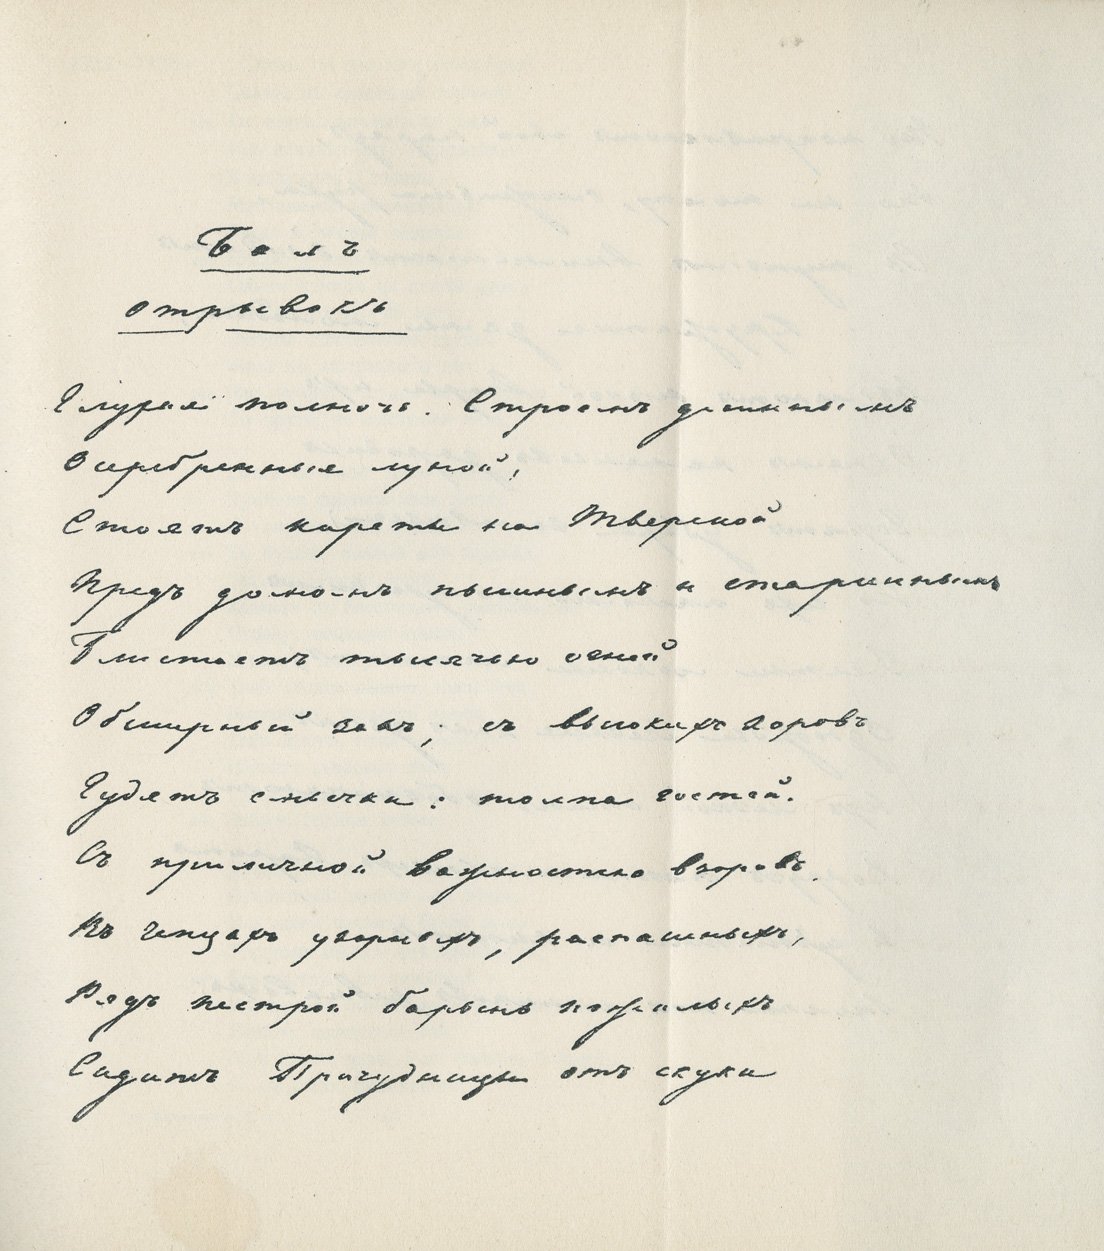 Балъ
отрывокъ
Глухая полночь. Строемъ длиннымъ
Осеребренные луной,
Стоятъ кареты на Тверской
Предъ домомъ пышнымъ и стариннымъ
Блистаетъ тысячью огней
Обширный залъ; съ высокихъ хоровъ
Гудятъ смычки; толпа гостей.
Съ приличной важностью взоровъ.
Въ чепцахъ узорныхъ, распашныхъ,
Рядъ пестрой барынь пожилыхъ
Сидитъ Причудницы отъ скуки